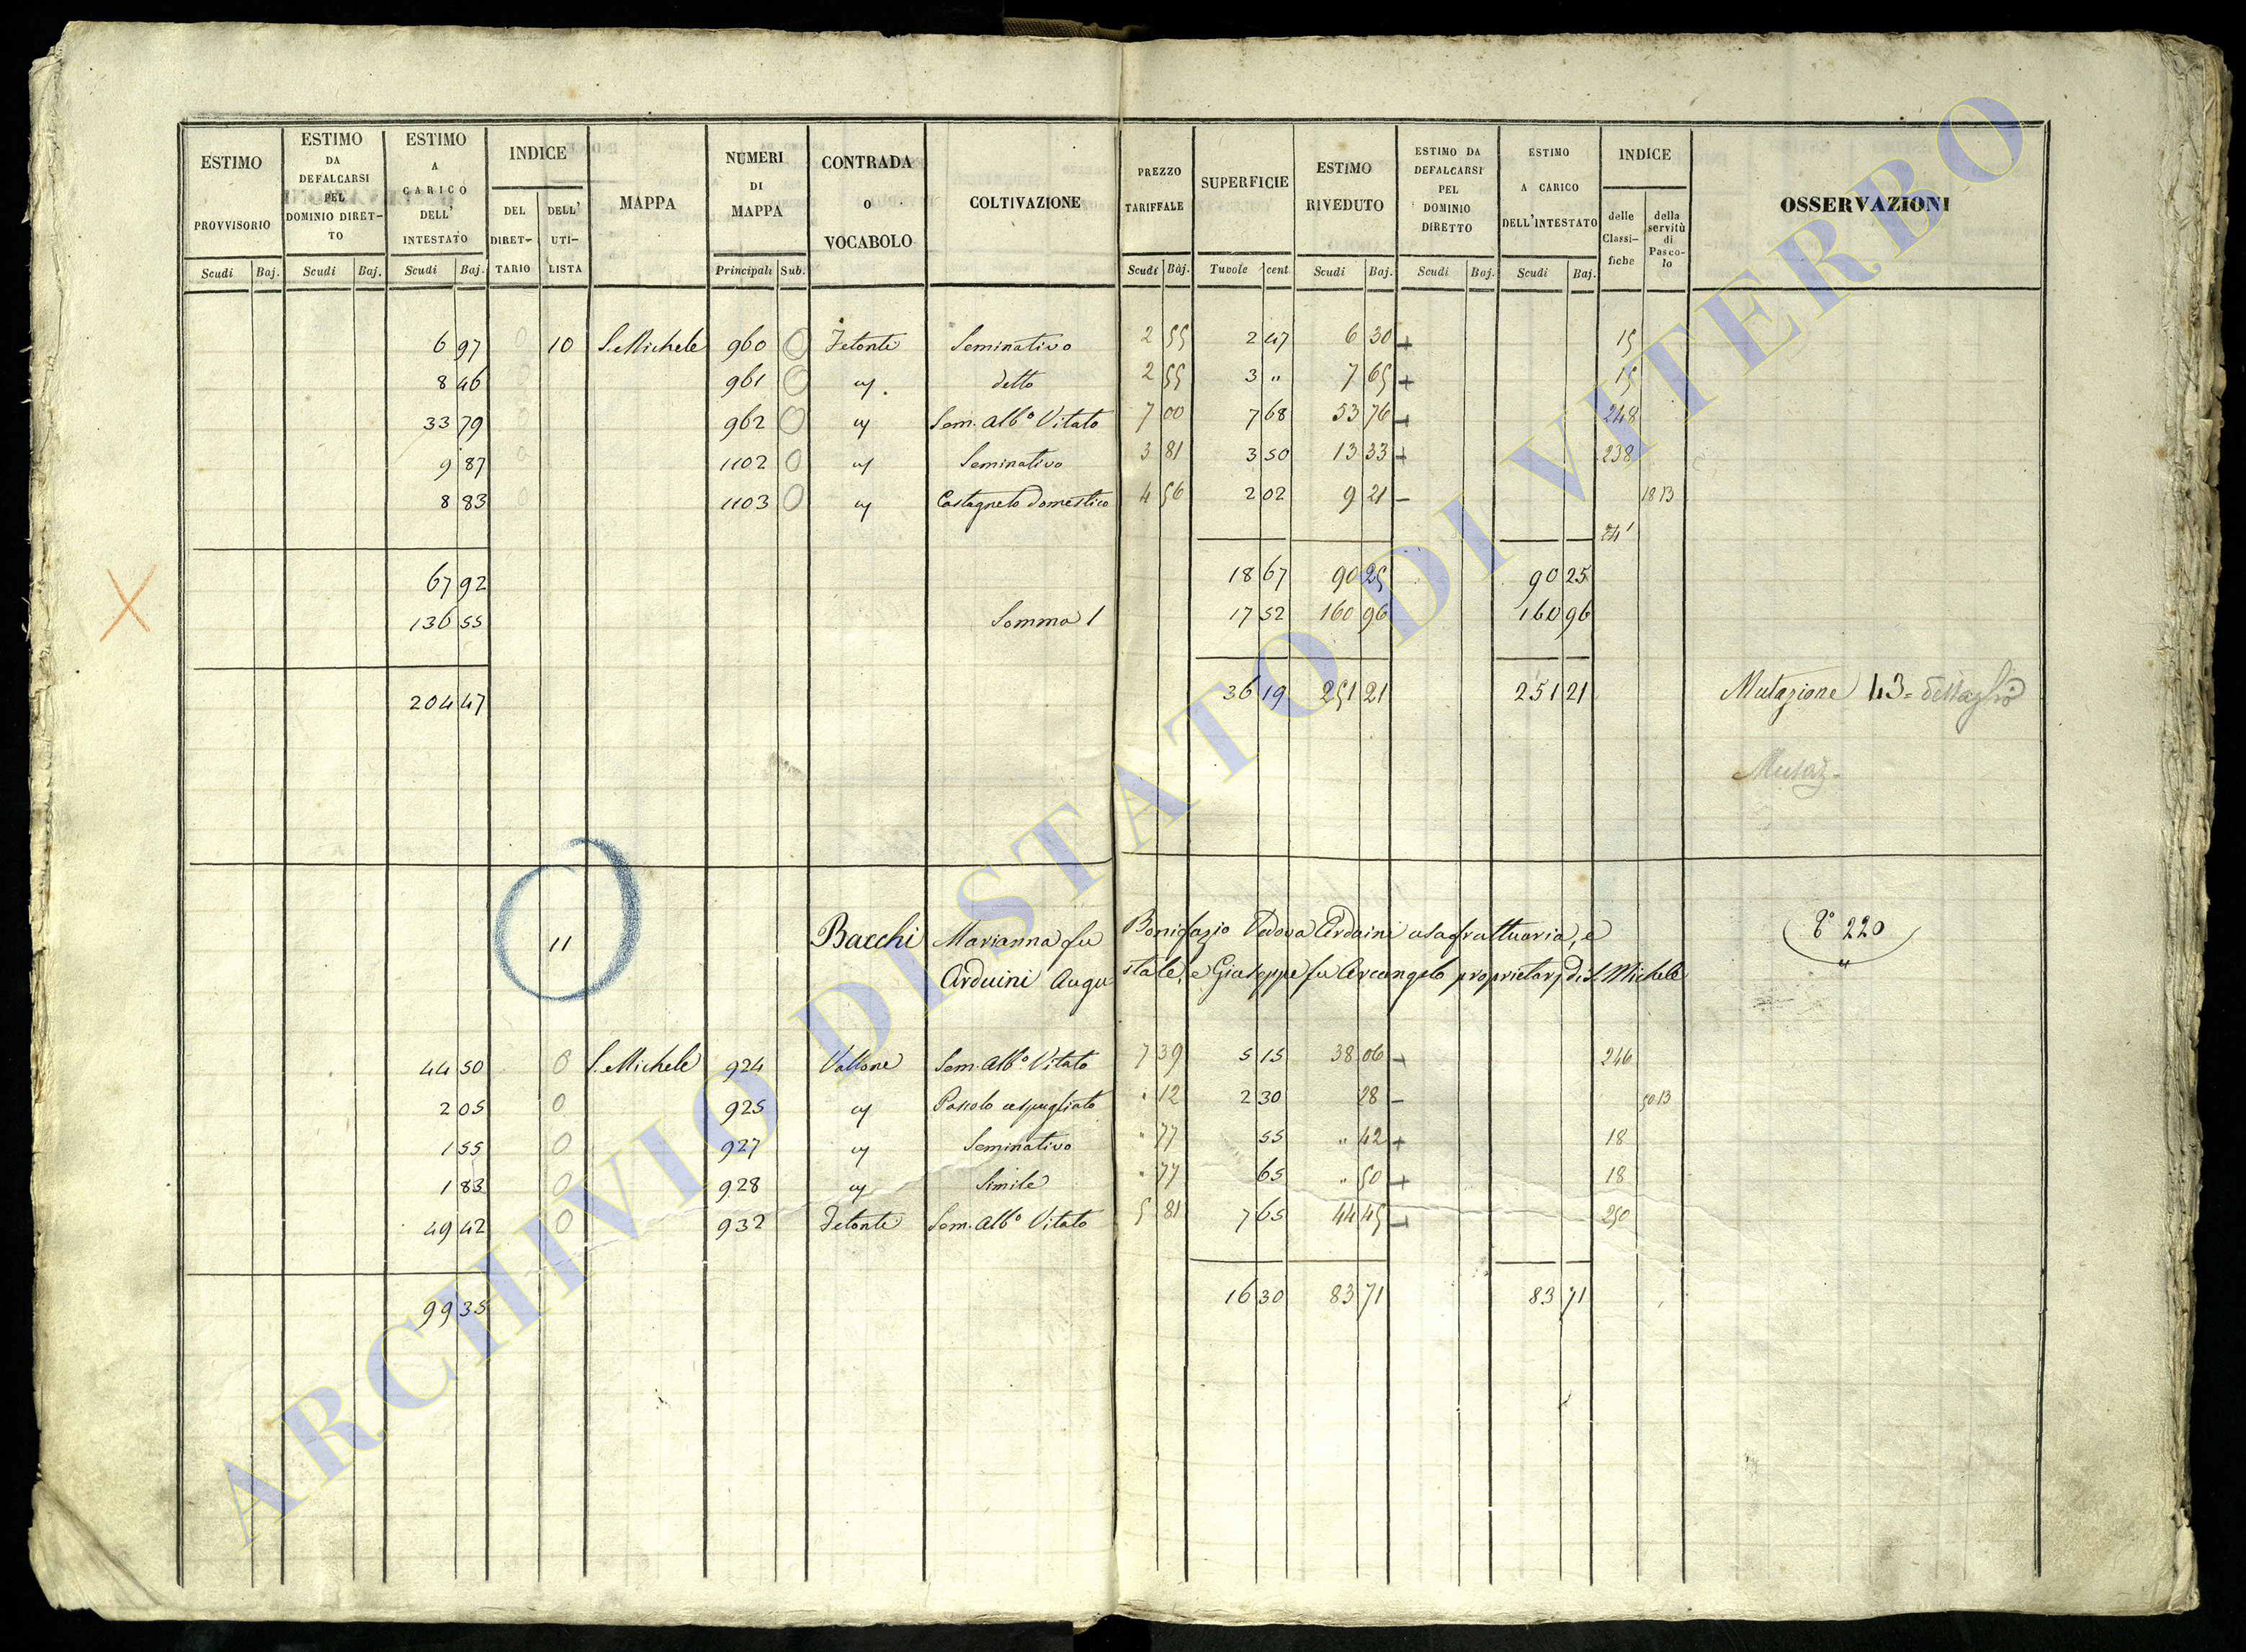 ESTIMO PROVVISORIO
Scudi Baj.
ESTIMO DA DEFALCARSI PEL DOMINIO DIRET-TO
Scudi Baj.
ESTIMO A CARICO DELL' INTESTATO
Scudi Baj.
INDICE
DEL DIRET-TARIO
DELL' UTI-LISTA
MAPPA
NUMERI DI MAPPA
Principali Sub.
CONTRADA O VOCABOLO
COLTIVAZIONE
PREZZO TARIFFALE
Scudi Baj.
SUPERFICIE
Tavole cent
ESTIMO RIVEDUTO
Scudi Baj.
ESTIMO DA DEFALCARSI PEL DOMINIO DIRETTO
Scudi Baj.
ESTIMO A CARICO DELL'INTESTATO
Scudi Baj.
INDICE
delle Classi-fiche
della servitù di Pasco-lo
OSSERVAZIONI
6 97 0 10 S. Michele 960 0 Fetonte Seminativo 2 55 2 47 6 30 + 15
8 46 0 961 0 " detto 2 55 3 " 7 65 + 15
33 79 0 962 0 " Sem. Alb.o Vitato 7 00 7 68 53 76 + 248
9 87 0 1102 0 " Seminativo 3 81 3 50 13 33 + 238
8 83 0 1103 0 " Castagneto domestico 4 56 2 02 9 21 - 18 13
241
67 92 18 67 90 25 90 25
136 55 Somma 1 17 52 160 96 160 96
204 47 36 19 251 21 251 21 Mutazione 43 = dettaglio
Mutaz.
11 Bacchi Marianna fu Bonifazio Vedova Arduini usufruttuaria, e
Arduini Augustale, e Giuseppe fu Arcangelo proprietarj di S. Michele
220
44 50 0 S. Michele 924 Vallone Sem. Alb.o Vitato 7 39 5 15 38 06 + 246
2 05 0 925 " Pascolo cespugliato " 12 2 30 28 - 50 13
1 55 0 927 " Seminativo " 77 55 " 42 + 18
1 83 0 928 " Simile " 77 65 " 50 + 18
49 42 0 932 Fetonte Sem. Alb.o Vitato 5 81 7 65 44 45 + 250
99 35 16 30 83 71 83 71
ARCHIVIO DI STATO DI VITERBO